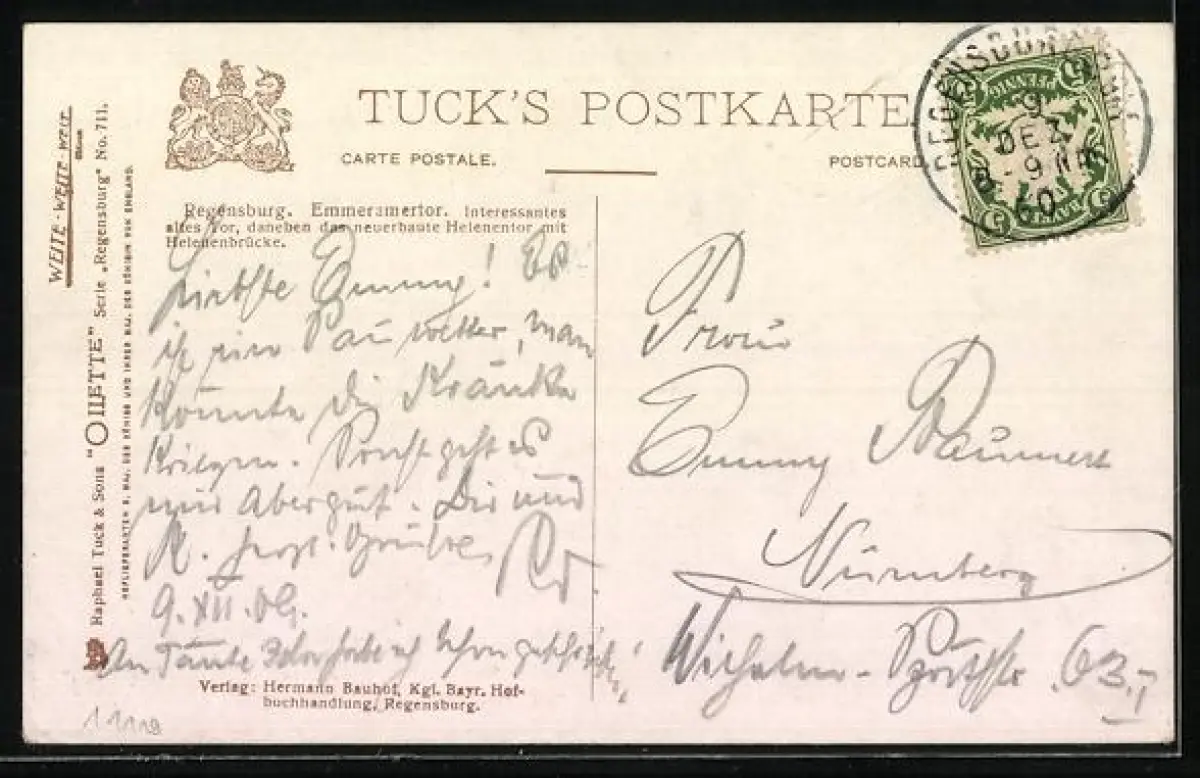 TUCK'S POSTKARTE
CARTE POSTALE.
POSTCARD
REGENSBURG
9
DEZ
9 NM
5 PFENNIG
BAYERN
WEITE-WEITE-WELT
Raphael Tuck & Sons "OILETTE" Serie „Regensburg" No. 711.
HOFLIEFERANTEN S. MAJ. DES KÖNIGS UND IHRER MAJ. DER KÖNIGIN VON ENGLAND.
Regensburg. Emmeramertor. Interessantes
altes Tor, daneben das neuerbaute Helenentor mit
Helenenbrücke.
Liebste Emmy! Es
ist ein Sauwetter, man
könnte die Kränke
kriegen. Sonst geht es
mir aber gut. Dir und
K. herzl. Grüsse,
9.XII.06.
An Tante habe ich schon geschrieben!
Verlag: Hermann Bauhof, Kgl. Bayr. Hof-
buchhandlung, Regensburg.
Frau
Emmy
Nürnberg
Wilhelm - 63.